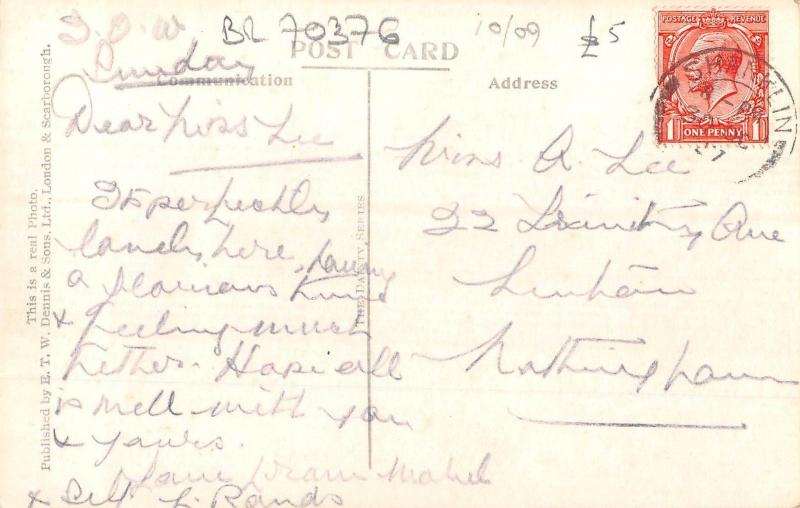 I.O.W
Sunday
BR 70376
10/09
£5
POST CARD
Communication
Address
POSTAGE REVENUE
ONE PENNY
1 1
Dear Miss Lee
Its perfectly
lovely here, having
a glorious time
& feeling much
better. Hope all
is well with you
& yours.
Love from Mabel
& Self L. Rands
Miss A. Lee
22 Trinity Ave
Lenton
Nottingham
THE DAINTY SERIES
This is a real Photo.
Published by E. T. W. Dennis & Sons, Ltd., London & Scarborough.